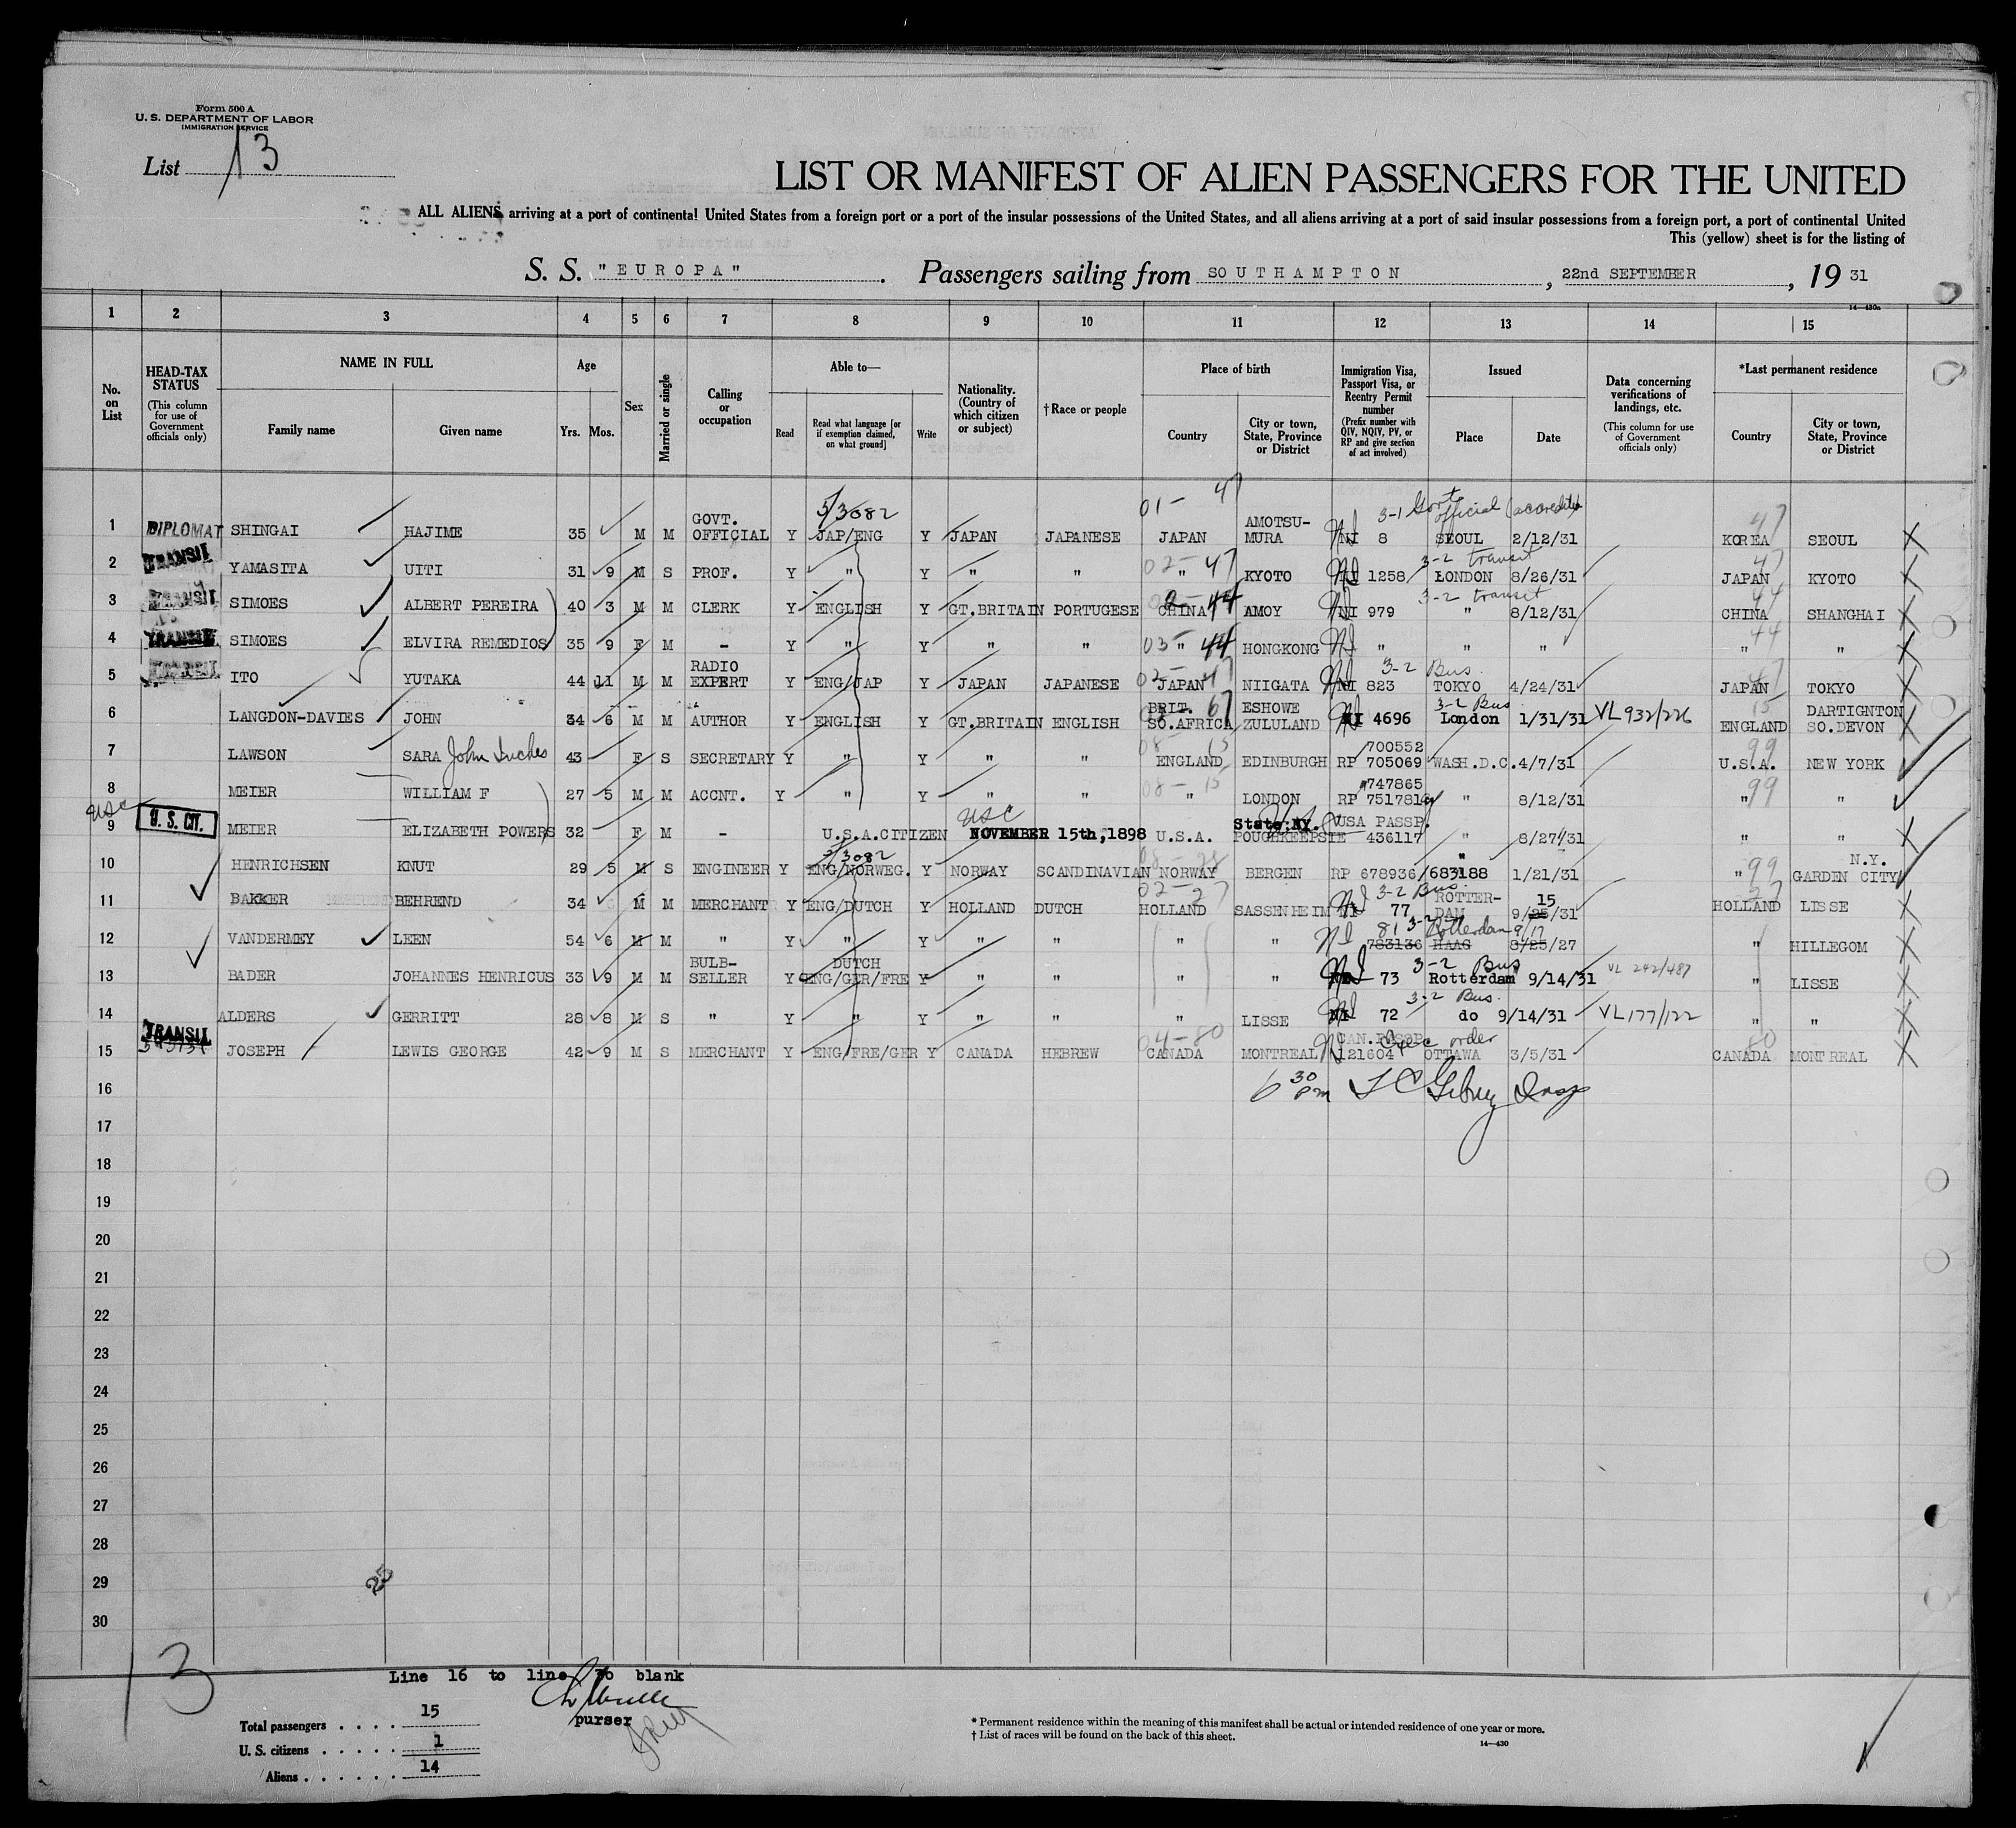 Form 500 A
U. S. DEPARTMENT OF LABOR
IMMIGRATION SERVICE
List 13
LIST OR MANIFEST OF ALIEN PASSENGERS FOR THE UNITED
ALL ALIENS arriving at a port of continental United States from a foreign port or a port of the insular possessions of the United States, and all aliens arriving at a port of said insular possessions from a foreign port, a port of continental United
This (yellow) sheet is for the listing of
S. S. "EUROPA". Passengers sailing from SOUTHAMPTON, 22nd SEPTEMBER, 19 31
14—430a
1 2 3 4 5 6 7 8 9 10 11 12 13 14 15
No. on List
HEAD-TAX STATUS (This column for use of Government officials only)
NAME IN FULL
Family name Given name
Age
Yrs. Mos.
Sex
Married or single
Calling or occupation
Able to—
Read
Read what language [or if exemption claimed, on what ground]
Write
Nationality. (Country of which citizen or subject)
†Race or people
Place of birth
Country
City or town, State, Province or District
Immigration Visa, Passport Visa, or Reentry Permit number (Prefix number with QIV, NQIV, PV, or RP and give section of act involved)
Issued
Place Date
Data concerning verifications of landings, etc. (This column for use of Government officials only)
*Last permanent residence
Country
City or town, State, Province or District
5/3082 01- 47 3-1 Govt official (accredited 47
1 DIPLOMAT SHINGAI HAJIME 35 M M GOVT. OFFICIAL Y JAP/ENG Y JAPAN JAPANESE JAPAN AMOTSU-MURA NI 8 SEOUL 2/12/31 KOREA SEOUL
02-47 3-2 transit 47
2 TRANSIT YAMASITA UITI 31 9 M S PROF. Y " Y " " " KYOTO NI 1258 LONDON 8/26/31 JAPAN KYOTO
44 3-2 transit 44
3 TRANSIT SIMOES ALBERT PEREIRA 40 3 M M CLERK Y ENGLISH Y GT.BRITAIN PORTUGESE CHINA AMOY NI 979 " 8/12/31 CHINA SHANGHAI
03- 44 44
4 TRANSIT SIMOES ELVIRA REMEDIOS 35 9 F M - Y " Y " " " HONGKONG " " " " "
02-47 3-2 Bus. 47
5 TRANSIT ITO YUTAKA 44 11 M M RADIO EXPERT Y ENG/JAP Y JAPAN JAPANESE JAPAN NIIGATA NI 823 TOKYO 4/24/31 JAPAN TOKYO
67 3-2 Bus 15
6 LANGDON-DAVIES JOHN 34 6 M M AUTHOR Y ENGLISH Y GT.BRITAIN ENGLISH BRIT. SO.AFRICA ESHOWE ZULULAND NI 4696 London 1/31/31 VL 932/226 ENGLAND DARTIGNTON SO.DEVON
08 15 99
7 LAWSON SARA John Inches 43 F S SECRETARY Y " Y " " ENGLAND EDINBURGH 700552 RP 705069 WASH.D.C. 4/7/31 U.S.A. NEW YORK
08-15 99
8 MEIER WILLIAM F 27 5 M M ACCNT. Y " Y " " " LONDON 747865 RP 751781 " 8/12/31 " "
usc usc
9 U. S. CIT. MEIER ELIZABETH POWERS 32 F M - U.S.A.CITIZEN NOVEMBER 15th,1898 U.S.A. State:NY. POUGHKEEPSIE USA PASSP. 436117 " 8/27/31 " "
5/3082 08-28 99
10 HENRICHSEN KNUT 29 5 M S ENGINEER Y ENG/NORWEG. Y NORWAY SCANDINAVIAN NORWAY BERGEN RP 678936/683188 " 1/21/31 " N.Y. GARDEN CITY
02-27 3-2 Bus. 27
11 BAKKER BEHREND 34 M M MERCHANT Y ENG/DUTCH Y HOLLAND DUTCH HOLLAND SASSENHEIM NI 77 ROTTER-DAM 15 9/25/31 HOLLAND LISSE
81 3-2 Rotterdam 9/17
12 VANDERMEY LEEN 54 6 M M " Y " Y " " " " 783136 HAAG 8/25/27 " HILLEGOM
3-2 Bus
13 BADER JOHANNES HENRICUS 33 9 M M BULB-SELLER Y DUTCH ENG/GER/FRE Y " " " " 73 Rotterdam 9/14/31 VL 242/487 " LISSE
3-2 Bus.
14 ALDERS GERRITT 28 8 M S " Y " Y " " " LISSE NI 72 do 9/14/31 VL 177/122 " "
04-80 Exec order 80
15 TRANSIT JOSEPH LEWIS GEORGE 42 9 M S MERCHANT Y ENG/FRE/GER Y CANADA HEBREW CANADA MONTREAL CAN.PASSP. 121604 OTTAWA 3/5/31 CANADA MONTREAL
16 6 30 pm
17
18
19
20
21
22
23
24
25
26
27
28
29
30
23
13
Line 16 to line 30 blank
purser
Total passengers . . . . 15
U. S. citizens . . . . . 1
Aliens . . . . . . 14
* Permanent residence within the meaning of this manifest shall be actual or intended residence of one year or more.
† List of races will be found on the back of this sheet.
14—430